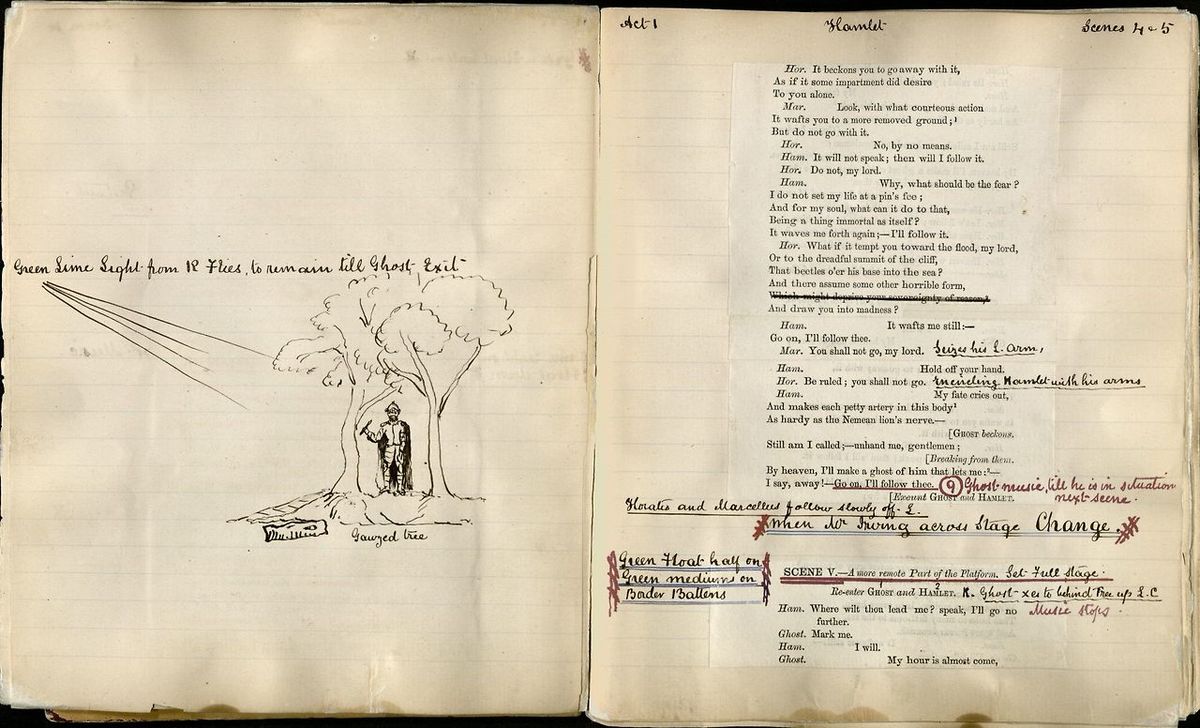 Green Lime Light from R Flies, to remain till Ghost Exit
Gauzed tree
Act 1 Hamlet Scenes 4 & 5
Hor. It beckons you to go away with it,
As if it some impartment did desire
To you alone.
Mar. Look, with what courteous action
It wafts you to a more removed ground;¹
But do not go with it.
Hor. No, by no means.
Ham. It will not speak; then will I follow it.
Hor. Do not, my lord.
Ham. Why, what should be the fear?
I do not set my life at a pin's fee;
And for my soul, what can it do to that,
Being a thing immortal as itself?
It waves me forth again;—I'll follow it.
Hor. What if it tempt you toward the flood, my lord,
Or to the dreadful summit of the cliff,
That beetles o'er his base into the sea?
And there assume some other horrible form,
Which might deprive your sovereignty of reason,
And draw you into madness?
Ham. It wafts me still:—
Go on, I'll follow thee.
Mar. You shall not go, my lord. Seizes his L. arm,
Ham. Hold off your hand.
Hor. Be ruled; you shall not go. encircling Hamlet with his arms
Ham. My fate cries out,
And makes each petty artery in this body¹
As hardy as the Nemean lion's nerve.—
[GHOST beckons.
Still am I called;—unhand me, gentlemen;
[Breaking from them.
By heaven, I'll make a ghost of him that lets me:²—
I say, away!—Go on, I'll follow thee. 9 Ghost music, till he is in situation
next scene.
[Exeunt GHOST and HAMLET.
Horatio and Marcellus follow slowly off L.
When Mr Irving across Stage Change.
Green Float half on
Green mediums on
Border Battens
SCENE V.—A more remote Part of the Platform. Set Full Stage.
Re-enter GHOST and HAMLET. R. Ghost xes to behind Tree up L.C
Ham. Where wilt thou lead me? speak, I'll go no Music stops.
further.
Ghost. Mark me.
Ham. I will.
Ghost. My hour is almost come,